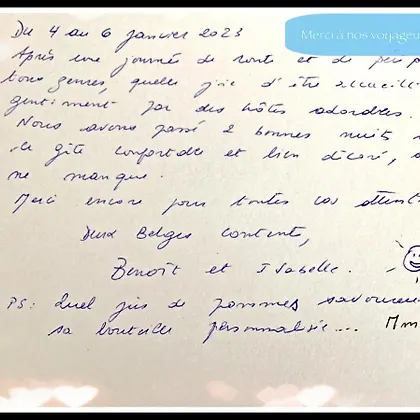 Merci à nos voyageu
Du 4 au 6 janvier 2023
Après une journée de route et de pé
tous genres, quelle joie d'être accueill
gentiment par des hôtes adorables.
Nous avons passé 2 bonnes nuits
ce gîte confortable et bien décoré,
ne manque.
Merci encore pour toutes vos attent
Deux Belges contents,
Benoît et Isabelle.
PS: Quel jus de pommes savoureu
sa bouteille personnalisée.... Mm